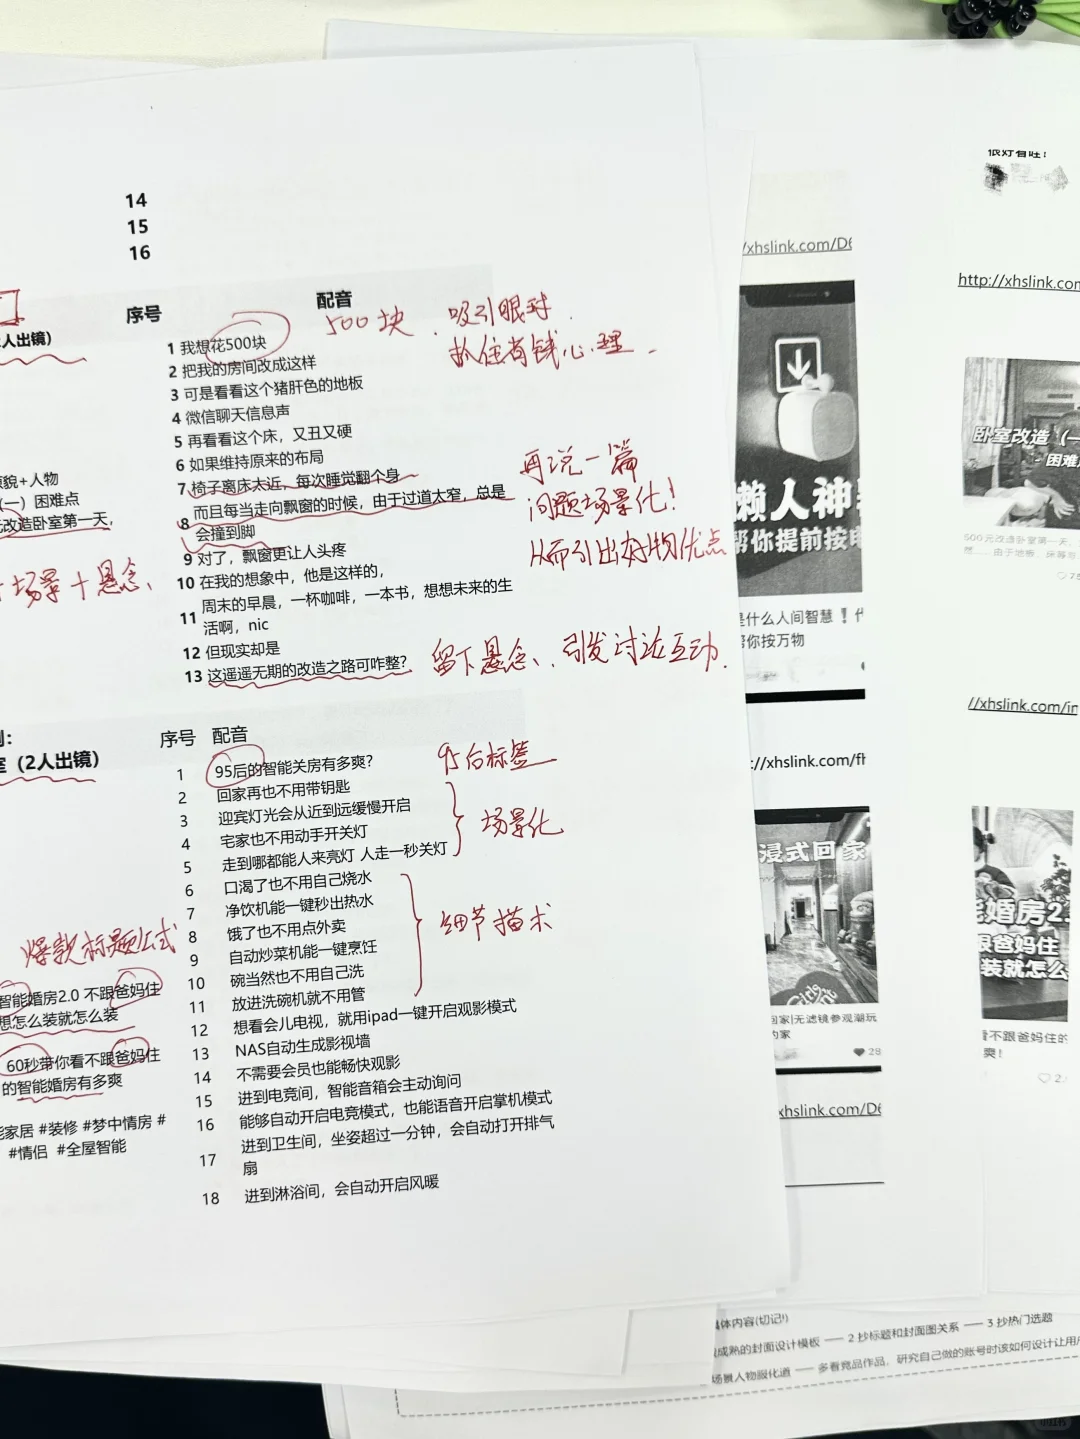 14
15
16
序号
配音
500块、吸引眼球、
抓住省钱心理。
人出镜)
1 我想花500块
2 把我的房间改成这样
3 可是看看这个猪肝色的地板
4 微信聊天信息声
5 再看看这个床，又丑又硬
6 如果维持原来的布局
7 椅子离床太近，每次睡觉翻个身
8 而且每当走向飘窗的时候，由于过道太窄，总是
会撞到脚
9 对了，飘窗更让人头疼
10 在我的想象中，他是这样的，
11 周末的早晨，一杯咖啡，一本书，想想未来的生
活啊，nic
12 但现实却是
13 这遥遥无期的改造之路可咋整?
原貌+人物
(一）困难点
改造卧室第一天，
场景+悬念、
再说一篇
问题场景化！
从而引出好物优点
留下悬念、引发讨论互动.
(2人出镜)
序号 配音
1 95后的智能关房有多爽?
2 回家再也不用带钥匙
3 迎宾灯光会从近到远缓慢开启
4 宅家也不用动手开关灯
5 走到哪都能人来亮灯 人走一秒关灯
6 口渴了也不用自己烧水
7 净饮机能一键秒出热水
8 饿了也不用点外卖
9 自动炒菜机能一键烹饪
10 碗当然也不用自己洗
11 放进洗碗机就不用管
12 想看会儿电视，就用ipad一键开启观影模式
13 NAS自动生成影视墙
14 不需要会员也能畅快观影
15 进到电竞间，智能音箱会主动询问
16 能够自动开启电竞模式，也能语音开启掌机模式
17 进到卫生间，坐姿超过一分钟，会自动打开排气
扇
18 进到淋浴间，会自动开启风暖
95后标签
场景化
细节描术
爆款标题公式
智能婚房2.0 不跟爸妈住
想怎么装就怎么装
60秒带你看不跟爸妈住
的智能婚房有多爽
能家居 #装修 #梦中情房 #
#情侣 #全屋智能
/xhslink.com/D6
懒人神
帮你提前按电
是什么人间智慧！代
帮你按万物
://xhslink.com/fh
浸式回家
回家|无滤镜参观潮玩
的家
28
xhslink.com/D6
http://xhslink.com
卧室改造（一
困难
500元改造卧室第一天，
//xhslink.com/in
婚房2.
跟爸妈住
装就怎么
看不跟爸妈住的
爽！
具体内容(切记!)
成熟的封面设计模板 — 2.抄标题和封面图关系 — 3.抄热门选题
场景人物服化道 — 多看竞品作品，研究自己做的账号时该如何设计让用